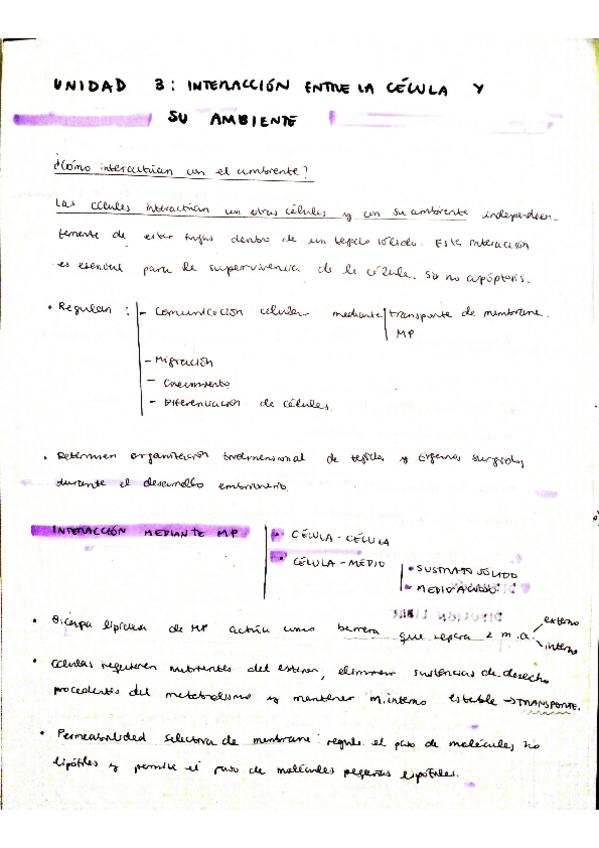 UNIDAD 3: INTERACCIÓN ENTRE LA CÉLULA Y
SU AMBIENTE
¿Cómo interactúan con el ambiente?
Las células interactúan con otras células y con su ambiente independien-
temente de estar fijas dentro de un tejido sólido. Esta interacción
es esencial para la supervivencia de la célula. Si no apoptosis.
• Regulan: - Comunicación celular mediante transporte de membrana.
MP
- Migración
- Crecimiento
- Diferenciación de células.
• Determinan organización tridimensional de tejidos y órganos surgidos
durante el desarrollo embrionario.
INTERACCIÓN MEDIANTE MP
• CÉLULA - CÉLULA
• CÉLULA - MEDIO
• SUSTRATO SÓLIDO
• MEDIO ACUOSO
• Bicapa lipídica de MP actúa como barrera que separa 2 m.a. externo
interno
• Células requieren nutrientes del exterior, eliminar sustancias de desecho
procedentes del metabolismo y mantener m. interno estable → TRANSPORTE.
• Permeabilidad selectiva de membrana: regula el paso de moléculas no
lipófilas y permite el paso de moléculas pequeñas lipófilas.